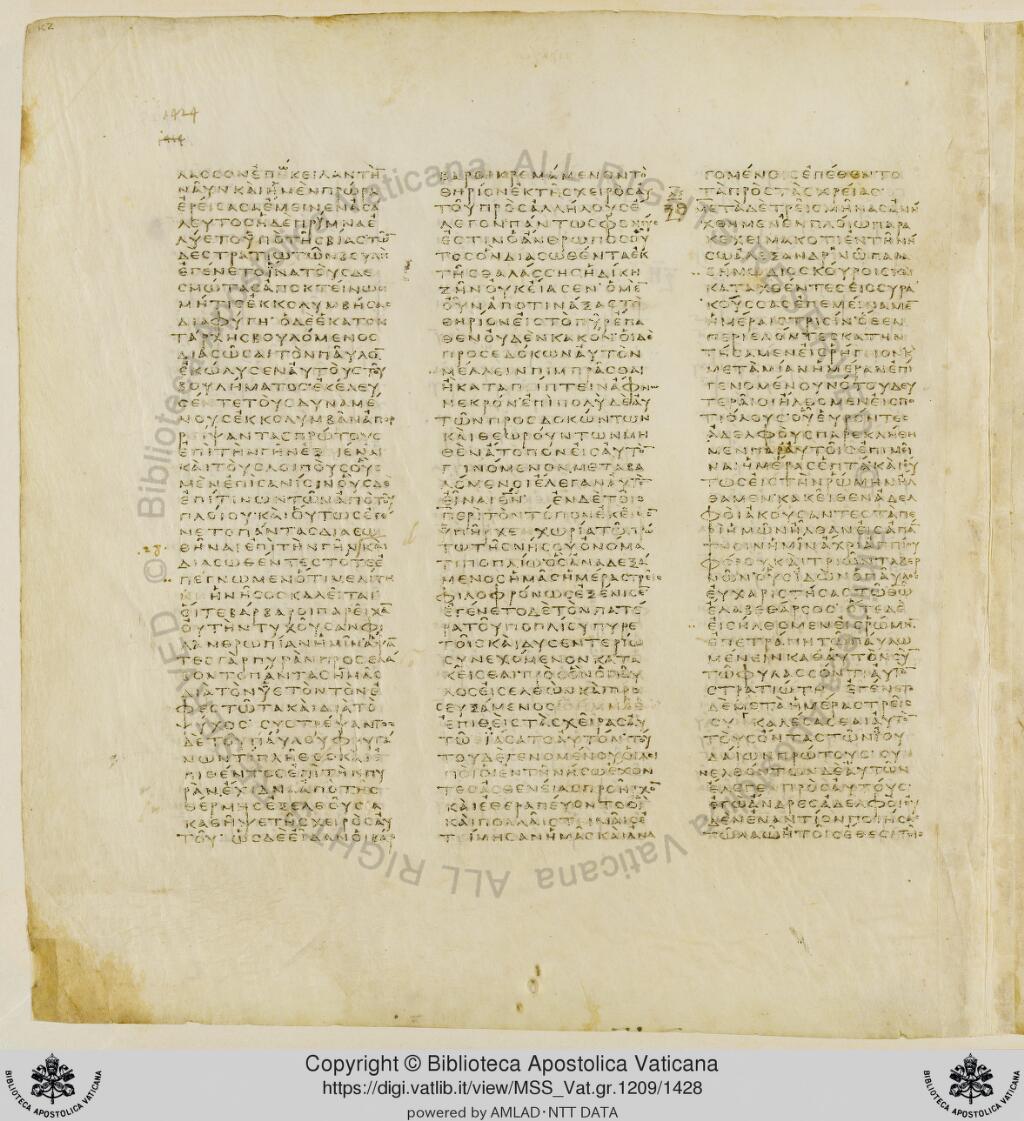 ΛΑССΟΝΕΠΕΚΕΙΛΑΝΤΗ̅
ΝΑΥΝΚΑΙΗΜΕΝΠΡΩΡΑ
ΕΡΕΙСΑСΑΕΜΕΙΝΕΝΑСΑ
ΛΕΥΤΟСΗΔΕΠΡΥΜΝΑΕ
ΛΥΕΤΟΥΠΟΤΗСΒΙΑСΤΩ̅
ΔΕСΤΡΑΤΙΩΤΩΝΒΟΥΛΗ
ΕΓΕΝΕΤΟΙΝΑΤΟΥСΔΕ
СΜΩΤΑСΑΠΟΚΤΕΙΝΩ
ΜΗΤΙСΕΚΚΟΛΥΜΒΗСΑС
ΔΙΑΦΥΓΗ·ΟΔΕΕΚΑΤΟΝ
ΤΑΡΧΗСΒΟΥΛΟΜΕΝΟС
ΔΙΑСΩСΑΙΤΟΝΠΑΥΛΟ̅
ΕΚΩΛΥСΕΝΑΥΤΟΥСΤΟΥ
ΒΟΥΛΗΜΑΤΟС·ΕΚΕΛΕΥ
СΕΝΤΕΤΟΥСΔΥΝΑΜΕ
ΝΟΥСΕΚΚΟΛΥΜΒΑΝΑΠΟΡ
ΡΙΨΑΝΤΑСΠΡΩΤΟΥС
ΕΠΙΤΗΝΓΗΝΕΞΙΕΝΑΙ
ΚΑΙΤΟΥСΛΟΙΠΟΥСΟΥС
ΜΕΝΕΠΙСΑΝΙСΙΝΟΥСΔΕ
ΕΠΙΤΙΝΩΝΤΩΝΑΠΟΤΟΥ
ΠΛΟΙΟΥ·ΚΑΙΟΥΤΩСΕΓΕ
ΝΕΤΟΠΑΝΤΑСΔΙΑСΩ
ΘΗΝΑΙΕΠΙΤΗΝΓΗΝΚΑΙ
ΔΙΑСΩΘΕΝΤΕСΤΟΤΕΕ
ΠΕΓΝΩΜΕΝΟΤΙΜΕΛΙΤΗ
ΝΗΗΝΗСΟСΚΑΛΕΙΤΑΙ
ΟΙΤΕΒΑΡΒΑΡΟΙΠΑΡΕΙΧΑ̅
ΟΥΤΗΝΤΥΧΟΥСΑΝΦΙ
ΛΑΝΘΡΩΠΙΑΝΗΜΙΝΑΨΑ̅
ΤΕСΓΑΡΠΥΡΑΝΠΡΟСΕΛΑ
ΒΟΝΤΟΠΑΝΤΑСΗΜΑС
ΔΙΑΤΟΝΥΕΤΟΝΤΟΝΕ
ΦΕСΤΩΤΑΚΑΙΔΙΑΤΟ
ΨΥΧΟС·СΥСΤΡΕΨΑΝΤΟС
ΔΕΤΟΥΠΑΥΛΟΥΦΡΥΓΑ
ΝΩΝΤΙΠΛΗΘΟСΚΑΙΕ
ΠΙΘΕΝΤΟСΕΠΙΤΗΝΠΥ
ΡΑΝΕΧΙΔΝΑΑΠΟΤΗС
ΘΕΡΜΗСΕΞΕΛΘΟΥСΑ
ΚΑΘΗΨΕΤΗСΧΕΙΡΟСΑΥ
ΤΟΥ·ΩСΔΕΕΙΔΑΝΟΙΒΑΡ
ΒΑΡΟΙΚΡΕΜΑΜΕΝΟΝΤΟ
ΘΗΡΙΟΝΕΚΤΗСΧΕΙΡΟСΑΥ
ΤΟΥΠΡΟСΑΛΛΗΛΟΥСΕ
ΛΕΓΟΝΠΑΝΤΩСΦΟΝΕΥС
ΕСΤΙΝΟΑΝΘΡΩΠΟСΟΥ
ΤΟСΟΝΔΙΑСΩΘΕΝΤΑΕΚ
ΤΗСΘΑΛΑССΗСΗΔΙΚΗ
ΖΗΝΟΥΚΕΙΑСΕΝ·ΟΜΕ̅
ΟΥΝΑΠΟΤΙΝΑΞΑСΤΟ
ΘΗΡΙΟΝΕΙСΤΟΠΥΡΕΠΑ
ΘΕΝΟΥΔΕΝΚΑΚΟΝ·ΟΙΔΕ
ΠΡΟСΕΔΟΚΩΝΑΥΤΟΝ
ΜΕΛΛΕΙΝΠΙΜΠΡΑСΘΑΙ
ΗΚΑΤΑΠΙΠΤΕΙΝΑΦΝΩ
ΝΕΚΡΟΝ·ΕΠΙΠΟΛΥΔΕΑΥ
ΤΩΝΠΡΟСΔΟΚΩΝΤΩΝ
ΚΑΙΘΕΩΡΟΥΝΤΩΝΜΗ
ΔΕΝΑΤΟΠΟΝΕΙСΑΥΤΟ̅
ΓΙΝΟΜΕΝΟΝΜΕΤΑΒΑ
ΛΟΜΕΝΟΙΕΛΕΓΟΝΑΥΤΟ̅
ΕΙΝΑΙΘΝ̅ ΕΝΔΕΤΟΙС
ΠΕΡΙΤΟΝΤΟΠΟΝΕΚΕΙΝΟ̅
ΥΠΗΡΧΕΧΩΡΙΑΤΩΠΡΩ
ΤΩΤΗСΝΗСΟΥΟΝΟΜΑ
ΤΙΠΟΠΛΙΩ·ΟСΑΝΑΔΕΞΑ
ΜΕΝΟСΗΜΑСΗΜΕΡΑСΤΡΕΙС
ΦΙΛΟΦΡΟΝΩСΕΞΕΝΙСΕ̅
ΕΓΕΝΕΤΟΔΕΤΟΝΠΑΤΕ
ΡΑΤΟΥΠΟΠΛΙΟΥΠΥΡΕ
ΤΟΙСΚΑΙΔΥСΕΝΤΕΡΙΩ
СΥΝΕΧΟΜΕΝΟΝΚΑΤΑ
ΚΕΙСΘΑΙΠΡΟСΟΝΟΠΑΥ
ΛΟСΕΙСΕΛΘΩΝΚΑΙΠΡΟ
СΕΥΞΑΜΕΝΟС
ΕΠΙΘΕΙСΤΑСΧΕΙΡΑСΑΥ
ΤΩΙΑСΑΤΟΑΥΤΟΝ·ΤΟΥ
ΤΟΥΔΕΓΕΝΟΜΕΝΟΥΟΙΛΟΙ
ΠΟΙΟΙΕΝΤΗΝΗСΩΕΧΟΝ
ΤΕСΑСΘΕΝΕΙΑСΠΡΟСΗΡΧΟ̅
ΚΑΙΕΘΕΡΑΠΕΥΟΝΤΟΟΙ
ΚΑΙΠΟΛΛΑΙСΤΙΜΑΙСΕ
ΤΙΜΗСΑΝΗΜΑСΚΑΙΑΝΑ
ΓΟΜΕΝΟΙСΕΠΕΘΕΝΤΟ
ΤΑΠΡΟСΤΑСΧΡΕΙΑС
ΜΕΤΑΔΕΤΡΕΙСΜΗΝΑСΑΝΗ
ΧΘΗΜΕΝΕΝΠΛΟΙΩΠΑΡΑ
ΚΕΧΕΙΜΑΚΟΤΙΕΝΤΗΝΗ
СΩΑΛΕΞΑΝΔΡΙΝΩΠΑΡΑ
СΗΜΩΔΙΟСΚΟΥΡΟΙСΚΑΙ
ΚΑΤΑΧΘΕΝΤΕСΕΙССΥΡΑ
ΚΟΥССΑСΕΠΕΜΕΙΝΑΜΕ̅
ΗΜΕΡΑΙСΤΡΙСΙΝ·ΟΘΕΝ
ΠΕΡΙΕΛΟΝΤΕСΚΑΤΗΝ
ΤΗСΑΜΕΝΕΙСΡΗΓΙΟΝΚΑΙ
ΜΕΤΑΜΙΑΝΗΜΕΡΑΝΕΠΙ
ΓΕΝΟΜΕΝΟΥΝΟΤΟΥΔΕΥ
ΤΕΡΑΙΟΙΗΛΘΟΜΕΝΕΙСΠΟ
ΤΙΟΛΟΥС·ΟΥΕΥΡΟΝΤΕС
ΑΔΕΛΦΟΥСΠΑΡΕΚΛΗΘΗ
ΜΕΝΠΑΡΑΥΤΟΙСΕΠΙΜΕΙ
ΝΑΙΗΜΕΡΑСΕΠΤΑΚΑΙΟΥ
ΤΩСΕΙСΤΗΝΡΩΜΗΝΗΛ
ΘΑΜΕΝ·ΚΑΚΕΙΘΕΝΑΔΕΛ
ΦΟΙΑΚΟΥСΑΝΤΕСΤΑΠΕ
ΡΙΗΜΩΝΗΛΘΑΝΕΙСΑΠΑ̅
ΤΗСΙΝΗΜΙΝΑΧΡΙΑΠΠΙΟΥ
ΦΟΡΟΥΚΑΙΤΡΙΩΝΤΑΒΕΡ
ΝΩΝ·ΟΥСΙΔΩΝΟΠΑΥΛΟС
ΕΥΧΑΡΙСΤΗСΑСΤΩΘΩ̅
ΕΛΑΒΕΘΑΡСΟС·ΟΤΕΔΕ
ΕΙСΗΛΘΟΜΕΝΕΙСΡΩΜΗ̅
ΕΠΕΤΡΑΠΗΤΩΠΑΥΛΩ
ΜΕΝΕΙΝΚΑΘΑΥΤΟΝСΥ̅
ΤΩΦΥΛΑССΟΝΤΙΑΥΤΟ̅
СΤΡΑΤΙΩΤΗ ΕΓΕΝΕΤΟ
ΔΕΜΕΤΑΗΜΕΡΑСΤΡΕΙС
СΥΝΚΑΛΕСΑСΘΑΙΑΥΤΟ̅
ΤΟΥСΟΝΤΑСΤΩΝΙΟΥ
ΔΑΙΩΝΠΡΩΤΟΥС·СΥ
ΝΕΛΘΟΝΤΩΝΔΕΑΥΤΩΝ
ΕΛΕΓΕΝΠΡΟСΑΥΤΟΥС·
ΕΓΩΑΝΔΡΕСΑΔΕΛΦΟΙΟΥ
ΔΕΝΕΝΑΝΤΙΟΝΠΟΙΗСΑС
ΤΩΛΑΩΗΤΟΙСΕΘΕСΙΤΟΙС
Copyright © Biblioteca Apostolica Vaticana
https://digi.vatlib.it/view/MSS_Vat.gr.1209/1428
powered by AMLAD·NTT DATA